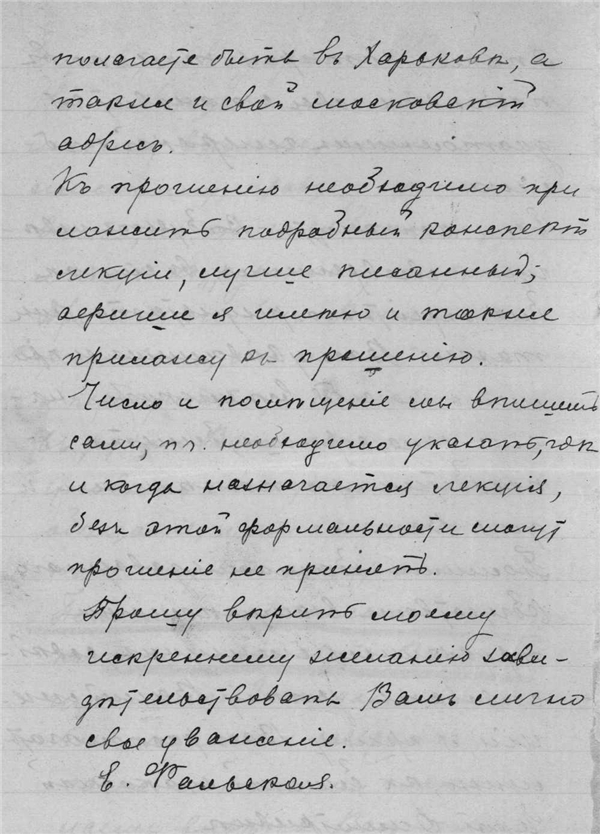 полагаете быть въ Харьковѣ, а
также и свой московскій
адресъ.
Къ прошенію необходимо при
ложить подробный конспектъ
лекціи, лучше писанный;
афиши я имѣю и также
приложу къ прошенію.
Число и помѣщеніе мы впишемъ
сами, т.к. необходимо указать, гдѣ
и когда назначается лекція,
безъ этой формальности могутъ
прошеніе не принять.
Прошу вѣрить моему
искреннему желанію засви-
дѣтельствовать Вамъ лично
свое уваженіе.
Е. Фальская.